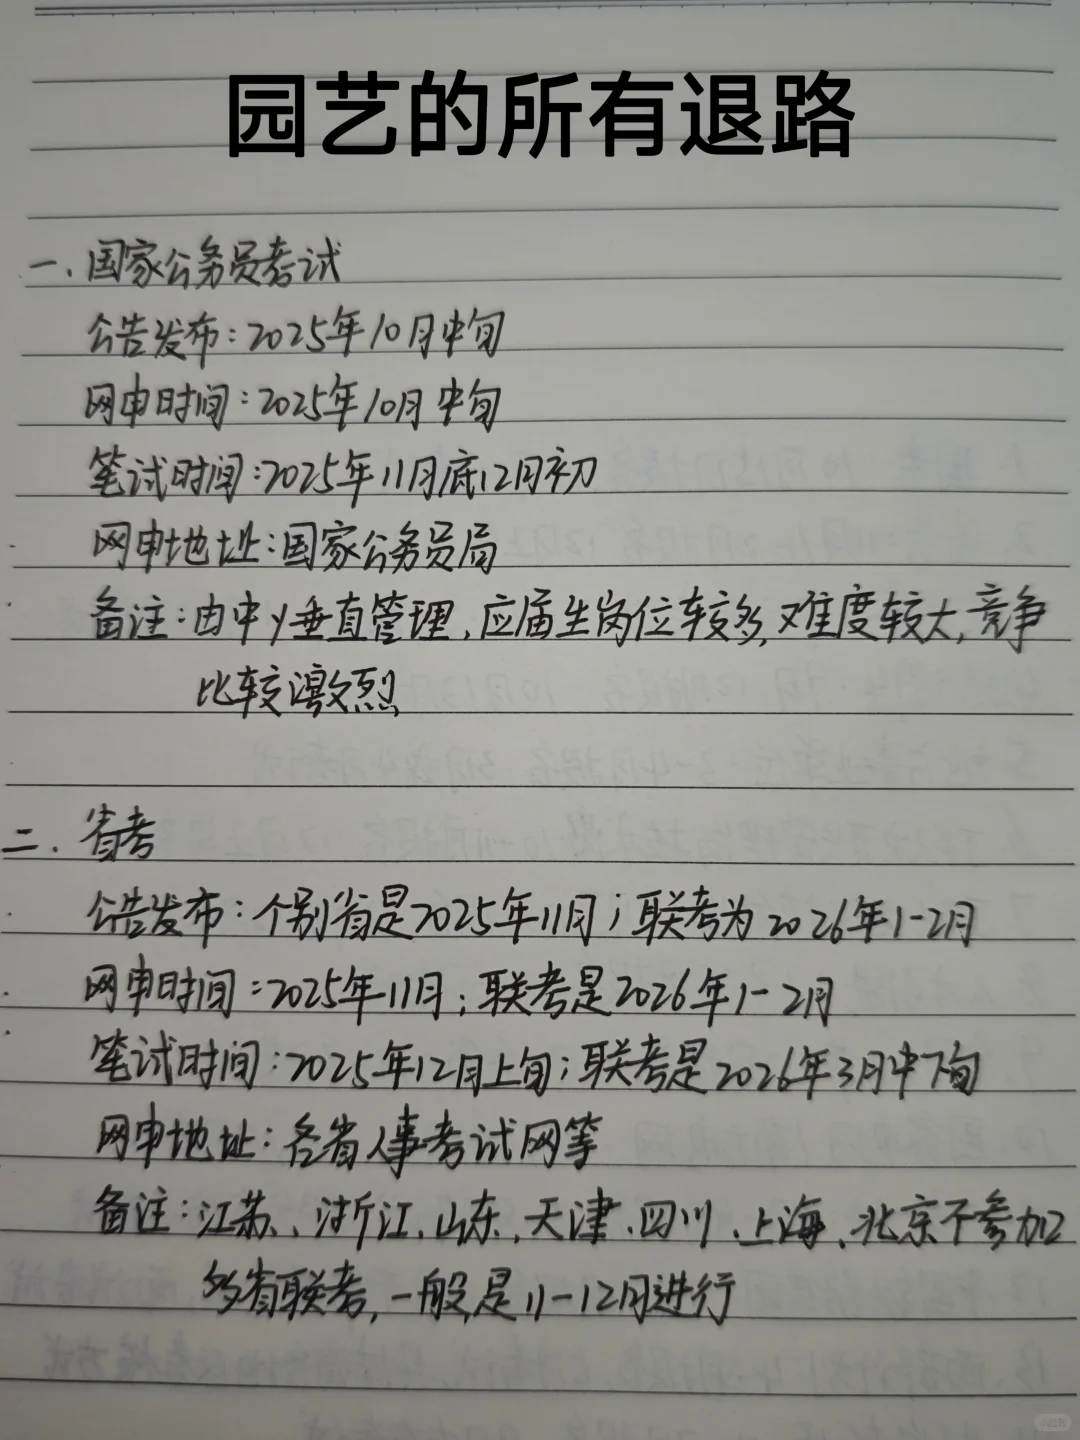 园艺的所有退路
一.国家公务员考试
公告发布:2025年10月中旬
网申时间:2025年10月中旬
笔试时间:2025年11月底12月初
网申地址:国家公务员局
备注:由中y垂直管理,应届生岗位较多,难度较大,竞争
比较激烈
二.省考
公告发布:个别省是2025年11月;联考为2026年1-2月
网申时间:2025年11月;联考是2026年1-2月
笔试时间:2025年12月上旬;联考是2026年3月中下旬
网申地址:各省人事考试网等
备注:江苏、浙江、山东、天津、四川、上海、北京不参加
多省联考,一般是11-12月进行
小红书